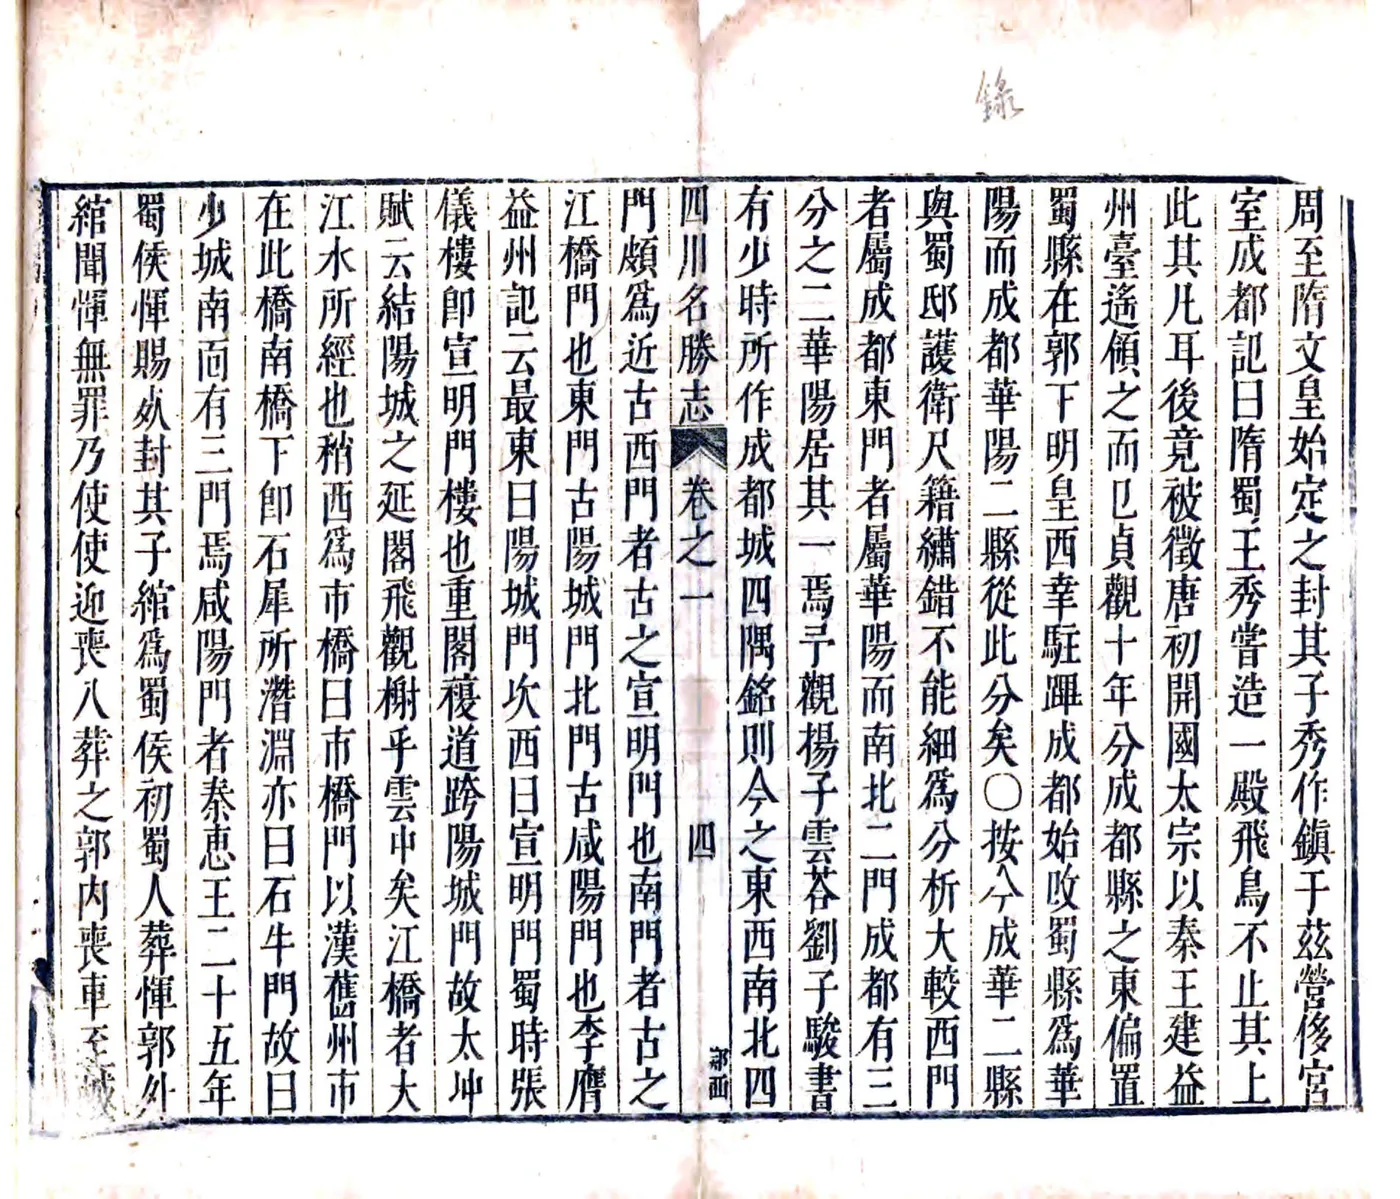 錄
周至隋文皇始定之封其子秀作鎮于茲營侈宮
室成都記曰隋蜀王秀嘗造一殿飛鳥不止其上
此其凡耳後竟被徵唐初開國太宗以秦王建益
州臺遙領之而已貞觀十年分成都縣之東偏置
蜀縣在郭下明皇西幸駐蹕成都始改蜀縣爲華
陽而成都華陽二縣從此分矣○按今成華二縣
與蜀邸護衛尺籍繡錯不能細爲分析大較西門
者屬成都東門者屬華陽而南北二門成都有三
分之二華陽居其一焉予觀揚子雲荅劉子駿書
有少時所作成都城四隅銘則今之東西南北四
四川名勝志 卷之一 四 郡西
門頗爲近古西門者古之宣明門也南門者古之
江橋門也東門古陽城門北門古咸陽門也李膺
益州記云最東曰陽城門次西曰宣明門蜀時張
儀樓卽宣明門樓也重閣複道跨陽城門故太冲
賦云結陽城之延閣飛觀榭乎雲中矣江橋者大
江水所經也稍西爲市橋曰市橋門以漢舊州市
在此橋南橋下卽石犀所潛淵亦曰石牛門故曰
少城南面有三門焉咸陽門者秦惠王二十五年
蜀侯惲賜死封其子綰爲蜀侯初蜀人葬惲郭外
綰聞惲無罪乃使使迎喪入葬之郭內喪車至城